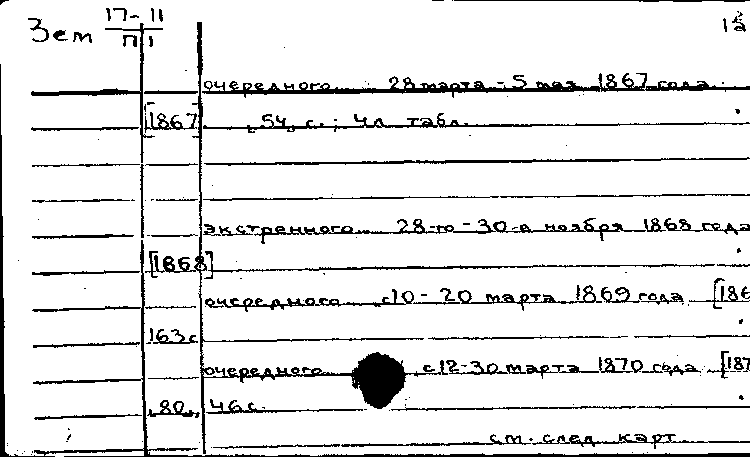 Зем 17-11
П 1
очередного... 28 марта - 5 мая 1867 года.
[1867] „54„ с. ; 4л табл.
экстренного... 28-го - 30-а ноября 1868 года
[1868]
очередного ...с10 - 20 марта 1869 года [186
163с
очередного с 12-30 марта 1870 года [187
„80„, 46с.
см. след карт